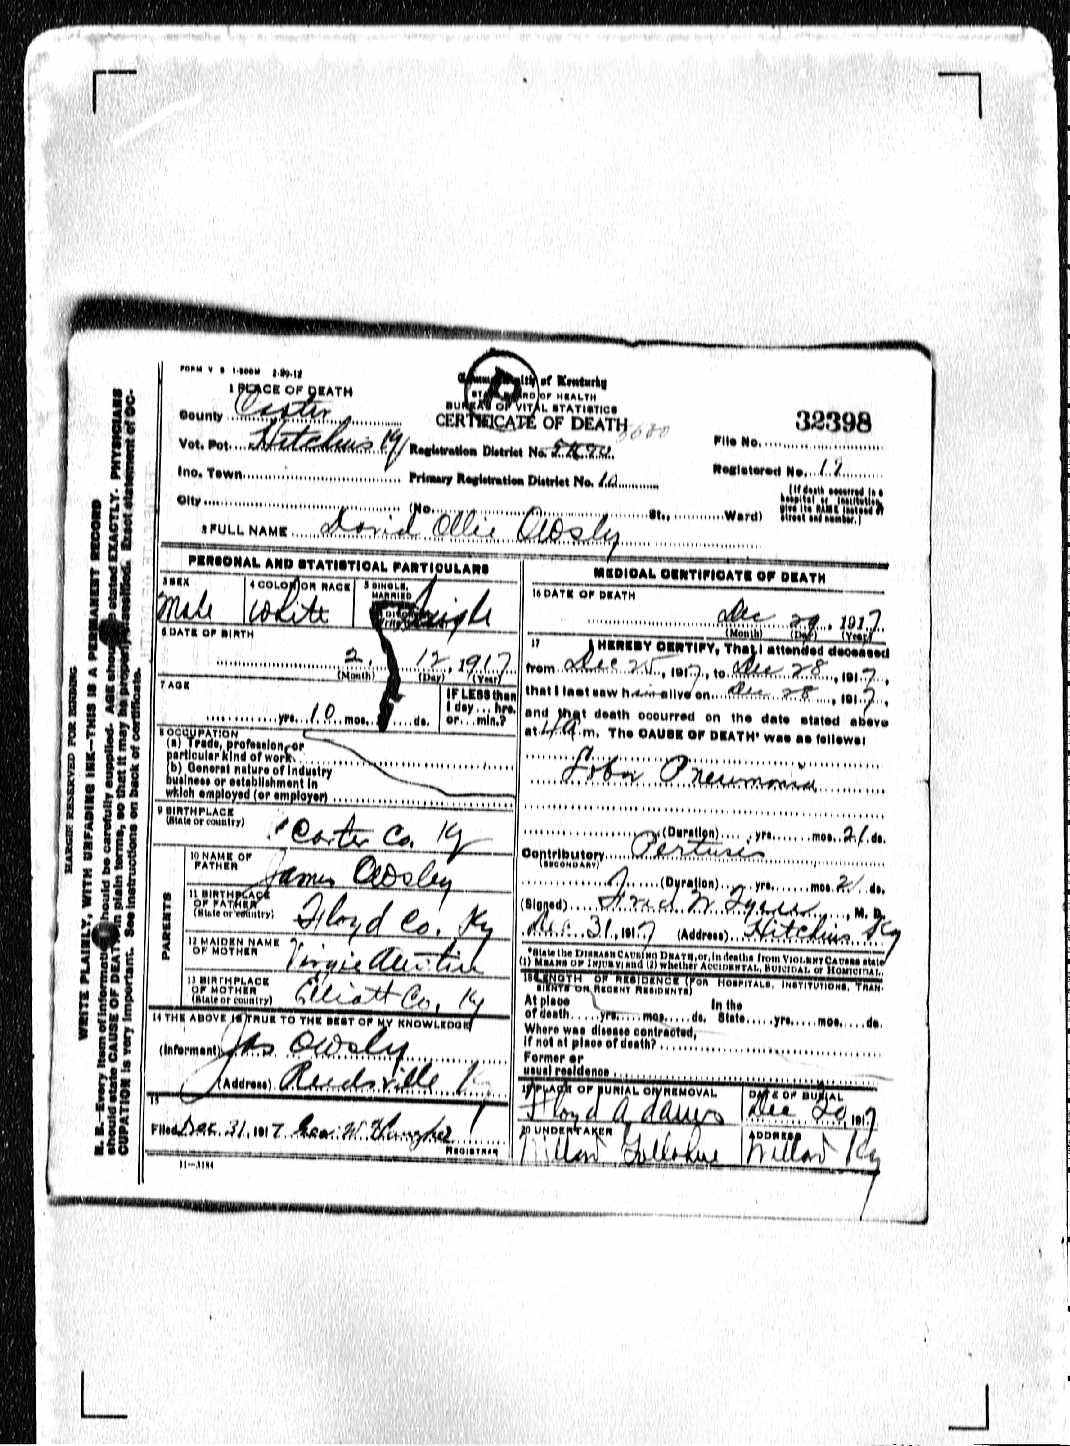 FORM V S 1-500M 2-29-12
Commonwealth of Kentucky
STATE BOARD OF HEALTH
BUREAU OF VITAL STATISTICS
CERTIFICATE OF DEATH
1 PLACE OF DEATH
County Carter
Vot. Pct. Hitchins Ky
Registration District No.
Inc. Town
Primary Registration District No. 10
City (No. St., Ward)
32398
File No.
Registered No. 17
[If death occurred in a hospital or institution, give its NAME instead of street and number.]
2 FULL NAME David Ollie Owsly
PERSONAL AND STATISTICAL PARTICULARS
3 SEX Male
4 COLOR OR RACE White
5 SINGLE, MARRIED Single
6 DATE OF BIRTH
2, 12, 1917
(Month) (Day) (Year)
7 AGE
yrs. 10 mos. ds.
IF LESS than 1 day... hrs. or... min.?
8 OCCUPATION
(a) Trade, profession, or particular kind of work
(b) General nature of industry business or establishment in which employed (or employer)
9 BIRTHPLACE (State or country) Carter Co. Ky
PARENTS
10 NAME OF FATHER James Owsley
11 BIRTHPLACE OF FATHER (State or country) Floyd Co. Ky
12 MAIDEN NAME OF MOTHER Virgie
13 BIRTHPLACE OF MOTHER (State or country) Elliott Co. Ky
14 THE ABOVE IS TRUE TO THE BEST OF MY KNOWLEDGE
(Informant) Jas Owsly
(Address) Reedsville Ky
15
Filed Dec 31, 1917 Geo. W.
REGISTRAR
11-3184
MEDICAL CERTIFICATE OF DEATH
16 DATE OF DEATH
Dec 29, 1917
(Month) (Day) (Year)
17 I HEREBY CERTIFY, That I attended deceased
from Dec 25, 1917, to Dec 28, 1917,
that I last saw him alive on Dec 28, 1917,
and that death occurred on the date stated above
at 4 a.m. The CAUSE OF DEATH* was as follows:
Lobar Pneumonia
(Duration) yrs. mos. 21 ds.
Contributory Pertusis
(SECONDARY)
(Duration) yrs. mos. 21 ds.
(Signed) Fred W., M. D.
Dec 31, 1917 (Address) Hitchins Ky
*State the DISEASE CAUSING DEATH, or, in deaths from VIOLENT CAUSES state
(1) MEANS OF INJURY; and (2) whether ACCIDENTAL, SUICIDAL or HOMICIDAL.
18 LENGTH OF RESIDENCE (FOR HOSPITALS, INSTITUTIONS, TRANSIENTS OR RECENT RESIDENTS)
At place of death yrs. mos. ds. In the State yrs. mos. ds.
Where was disease contracted,
if not at place of death?
Former or
usual residence
19 PLACE OF BURIAL OR REMOVAL
DATE OF BURIAL
Dec 1917
20 UNDERTAKER
ADDRESS
Willard Ky
MARGIN RESERVED FOR BINDING
WRITE PLAINLY, WITH UNFADING INK—THIS IS A PERMANENT RECORD
N. B.—Every item of information should be carefully supplied. AGE should be stated EXACTLY. PHYSICIANS
should state CAUSE OF DEATH in plain terms, so that it may be properly classified. Exact statement of OC-
CUPATION is very important. See instructions on back of certificate.